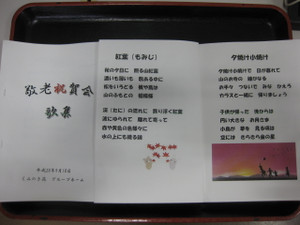 敬老祝賀会
歌集
紅葉（もみじ）
秋の夕日に 照る山紅葉
濃いも薄いも 数ある中に
松をいろどる 楓や蔦は
山のふもとの 裾模様
渓（たに）の流れに 散り浮く紅葉
波にゆられて 離れて寄って
赤や黄色の色様々に
水の上にも織る錦
夕焼け小焼け
夕焼け小焼けで 日が暮れて
山のお寺の 鐘がなる
お手々 つないで みな かえろ
からスと一緒に 帰りましょう
子供が帰った 後からは
円い大きな お月さま
小鳥が 夢を 見る頃は
空には きらきら金の星